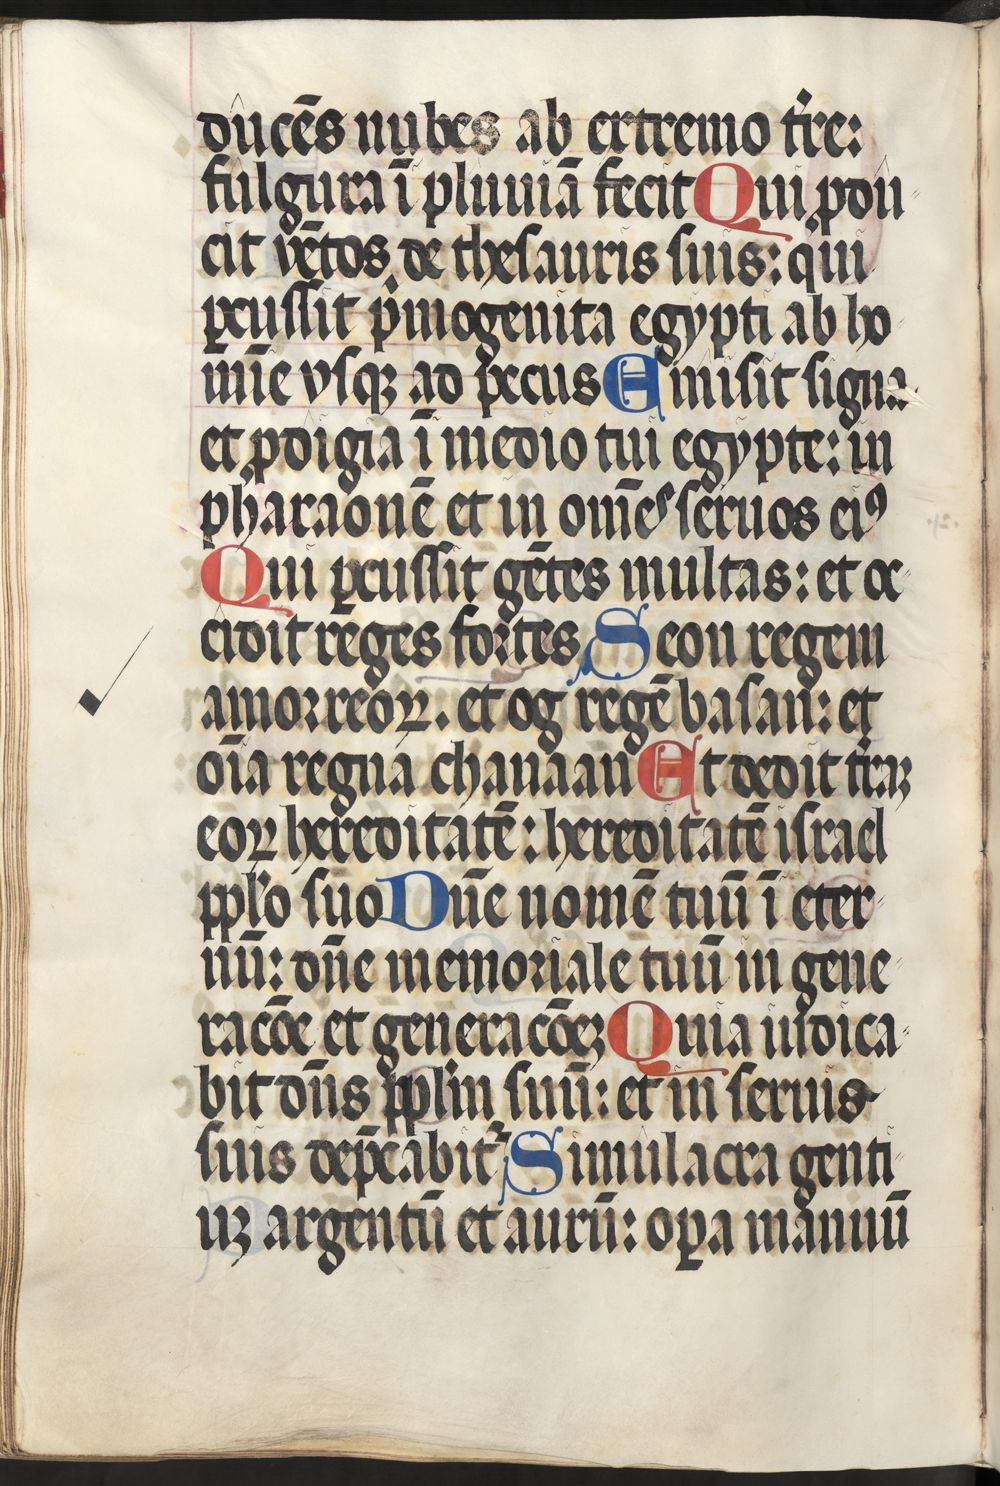 ducēs nubes ab extremo t̄re:
fulgura ī pluuiā fecit Qui ꝓdu
cit vētos de thesauris suis: qui
ꝑcussit p̄mogenita egypti ab ho
mīe vsqꝫ ad pecus Emisit signa
et ꝓdigia ī medio tui egypte: in
pharaonē et in om̄es seruos eiꝰ
Qui ꝑcussit gētes multas: et oc
cidit reges fortes Seon regem
amorreoꝝ. et og regē basan: et
oīa regna chanaan Et dedit t̄raꝫ
eoꝝ hereditatē: hereditatē israel
pplo suo Dn̄e nomē tuū ī eter
nū: dn̄e memoriale tuū in gene
racōe et generacōeꝫ Quia iudica
bit dn̄s pplm̄ suū: et in seruis
suis dep̄cabit̄ Simulacra genti
uꝫ argentū et aurū: oꝑa manuū